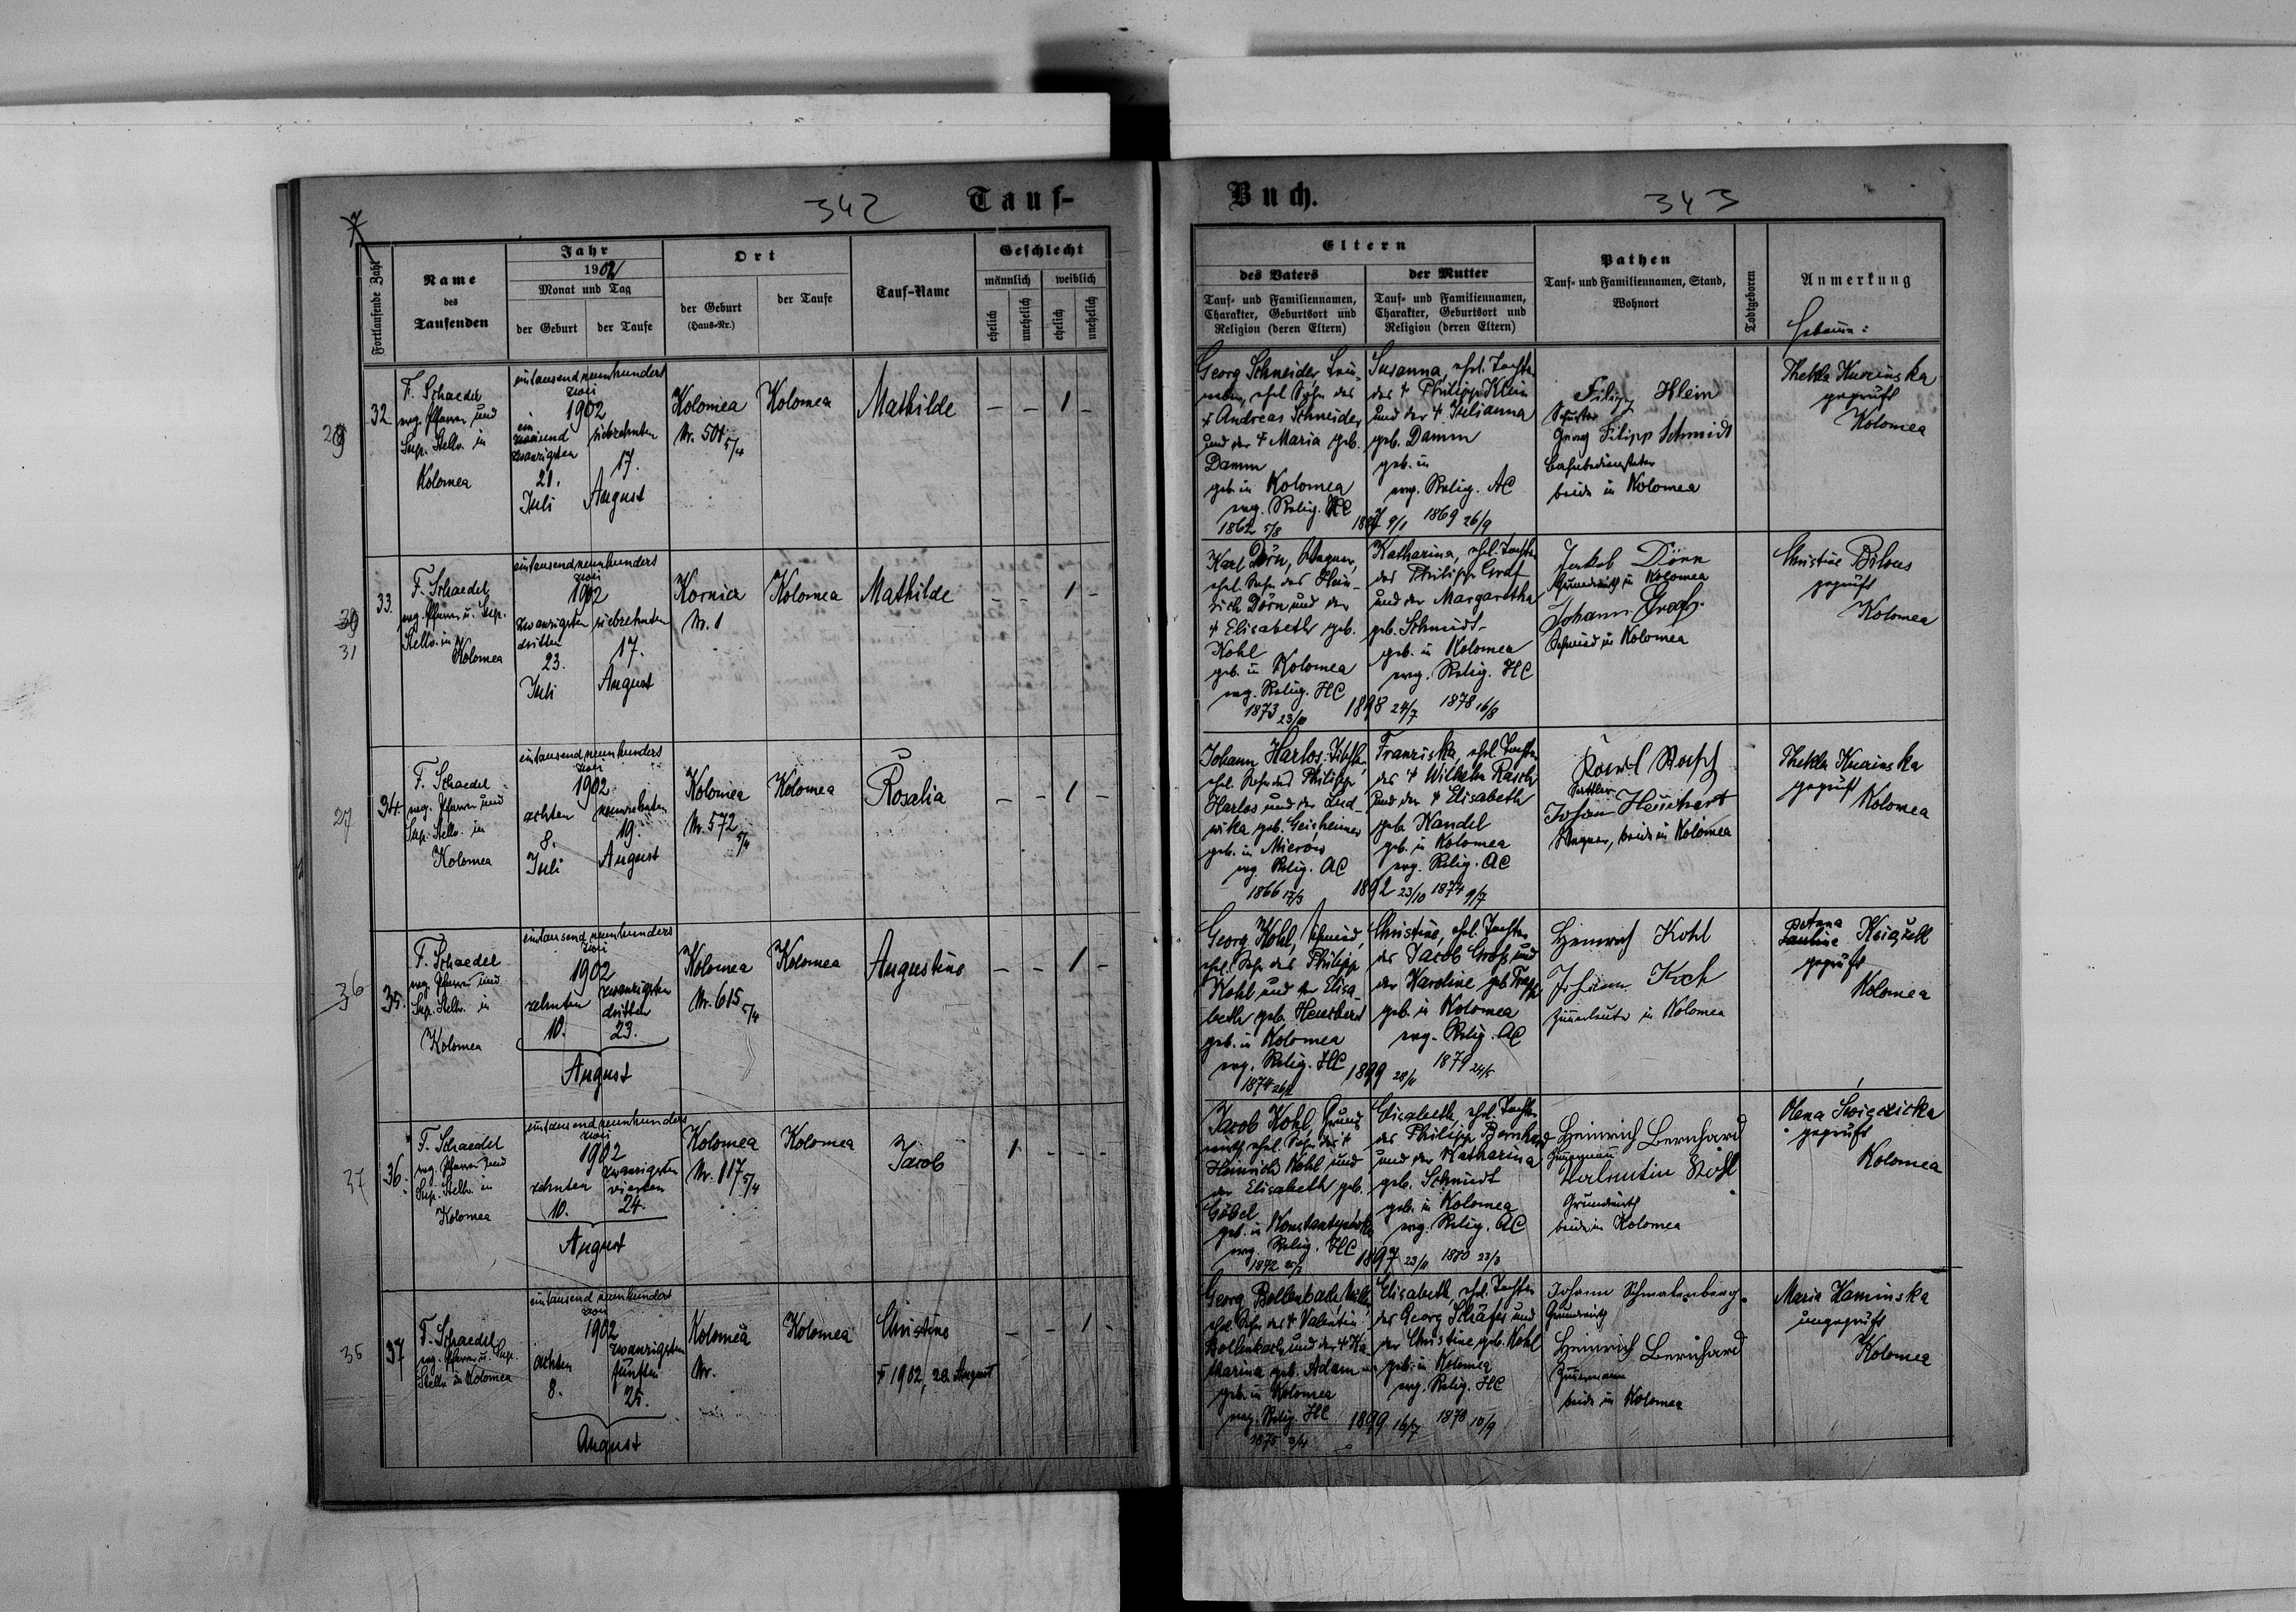 342
Tauf-
Fortlaufende Zahl
Name
des
Taufenden
Jahr
1902
Monat und Tag
der Geburt
der Taufe
Ort
der Geburt
(Haus-Nr.)
der Taufe
Tauf-Name
Geschlecht
männlich
weiblich
ehelich
unehelich
ehelich
unehelich
32
F. Schaedel
evg. Pfarrer und
Sup. Stellv. in
Kolomea
eintausendneunhundert
zwei
1902
ein
zwanzigsten
21.
Juli
siebzehnten
17.
August
Kolomea
Nr. 501 5/4
Kolomea
Mathilde
— — 1 —
31
33.
F. Schaedel
evg. Pfarrer u. Sup.
Stellv. in
Kolomea
eintausendneunhundert
zwei
1902
zwanzigsten
dritten
23.
Juli
siebzehnten
17.
August
Kornicz
Nr. 1
Kolomea
Mathilde
— — 1 —
27
34.
F. Schaedel
evg. Pfarrer und
Sup. Stellv. in
Kolomea
eintausendneunhundert
zwei
1902
achten
8.
Juli
neunzehnten
19.
August
Kolomea
Nr. 572 5/4
Kolomea
Rosalia
— — 1 —
36
35.
F. Schaedel
evg. Pfarrer und
Sup. Stellv. in
Kolomea
eintausendneunhundert
zwei
1902
zehnten
10.
zwanzigsten
dritten
23.
August
Kolomea
Nr. 615 5/4
Kolomea
Augustine
— — 1 —
37
36.
F. Schaedel
evg. Pfarrer und
Sup. Stellv. in
Kolomea
eintausendneunhundert
zwei
1902
zehnten
10.
zwanzigsten
vierten
24.
August
Kolomea
Nr. 117 5/4
Kolomea
Jacob
1 — — —
35
37
F. Schaedel
evg. Pfarrer u. Sup.
Stellv. in Kolomea
eintausendneunhundert
zwei
1902
achten
8.
zwanzigsten
fünften
25.
August
Kolomea
Nr.
Kolomea
Christine
† 1902, 28. August
— — 1 —
Buch.
343
Eltern
des Vaters
Tauf- und Familiennamen,
Charakter, Geburtsort und
Religion (deren Eltern)
der Mutter
Tauf- und Familiennamen,
Charakter, Geburtsort und
Religion (deren Eltern)
Pathen
Tauf- und Familiennamen, Stand,
Wohnort
Todtgeboren
Anmerkung
Hebamme:
Georg Schneider,
ehel. Sohn des
† Andreas Schneider
und der † Maria geb.
Damm
geb. in Kolomea
evg. Relig. HC
1862 5/8
Susanna, ehel. Tochter
des † Philipp Klein
und der † Julianna
geb. Damm
geb. in
evg. Relig. AC
9/1 1869 26/9
Filipp Klein
Schuster
Georg Filipp Schmidt
Bahnbediensteter
beide in Kolomea
Thekla Kurzinska
geprüft
Kolomea
Karl Dörn, Wagner,
ehel. Sohn des Hein-
rich Dörn und der
† Elisabeth geb.
Kohl
geb. in Kolomea
evg. Relig. HC
1873 23/10
Katharina, ehel. Tochter
des Philipp Graf
und der Margaretha
geb. Schmidt
geb. in Kolomea
evg. Relig. HC
1898 24/7 1878 16/8
Jakob Dörn
Grundwirth in Kolomea
Johann
Schmied in Kolomea
Christine Bilous
geprüft
Kolomea
Johann Harlos, Tischler,
ehel. Sohn des Philipp
Harlos und der Lud-
wika geb. Geisheimer
geb. in Mierow
evg. Relig. AC
1866 17/3
Franziska, ehel. Tochter
des † Wilhelm Rasch
und der † Elisabeth
geb. Mandel
geb. in Kolomea
evg. Relig. AC
1892 23/10 1874 9/7
Karl Rasch
Sattler
Johann Heuchert
Wagner, beide in Kolomea
Thekla Kurzinska
geprüft
Kolomea
Georg Kohl, Schmied,
ehel. Sohn des Philipp
Kohl und der Elisa-
beth geb. Heuchert
geb. in Kolomea
evg. Relig. HC
1874
Christine, ehel. Tochter
des Jacob Groß und
der Karoline geb. Trapp
geb. in Kolomea
evg. Relig. AC
1899 28/11 1879 24/5
Heinrich Kohl
Johann Koch
Zimmerleute in Kolomea
Książek
geprüft
Kolomea
Jacob Kohl, Grund-
wirth, ehel. Sohn des †
Heinrich Kohl und
der Elisabeth geb.
Göbel
geb. in Konstantynówka
evg. Relig. HC
1872
Elisabeth, ehel. Tochter
des Philipp Bernhard
und der Katharina
geb. Schmidt
geb. in Kolomea
evg. Relig. AC
1897 23/11 1880 23/3
Heinrich Bernhard
Zimmermann
Valentin Kohl
Grundwirth
beide in Kolomea
Olena Swigzicka
geprüft
Kolomea
Georg Bollenbach, Müller,
ehel. Sohn des † Valentin
Bollenbach und der † Ka-
tharina geb. Adam
geb. in Kolomea
evg. Relig. HC
1875 3/4
Elisabeth, ehel. Tochter
des Georg Schäfer und
der Christine geb. Kohl
geb. in Kolomea
evg. Relig. HC
1899 16/7 1878 10/9
Johann Schmalenberg
Grundwirth
Heinrich Bernhard
Zimmermann
beide in Kolomea
Maria Kaminska
ungeprüft
Kolomea